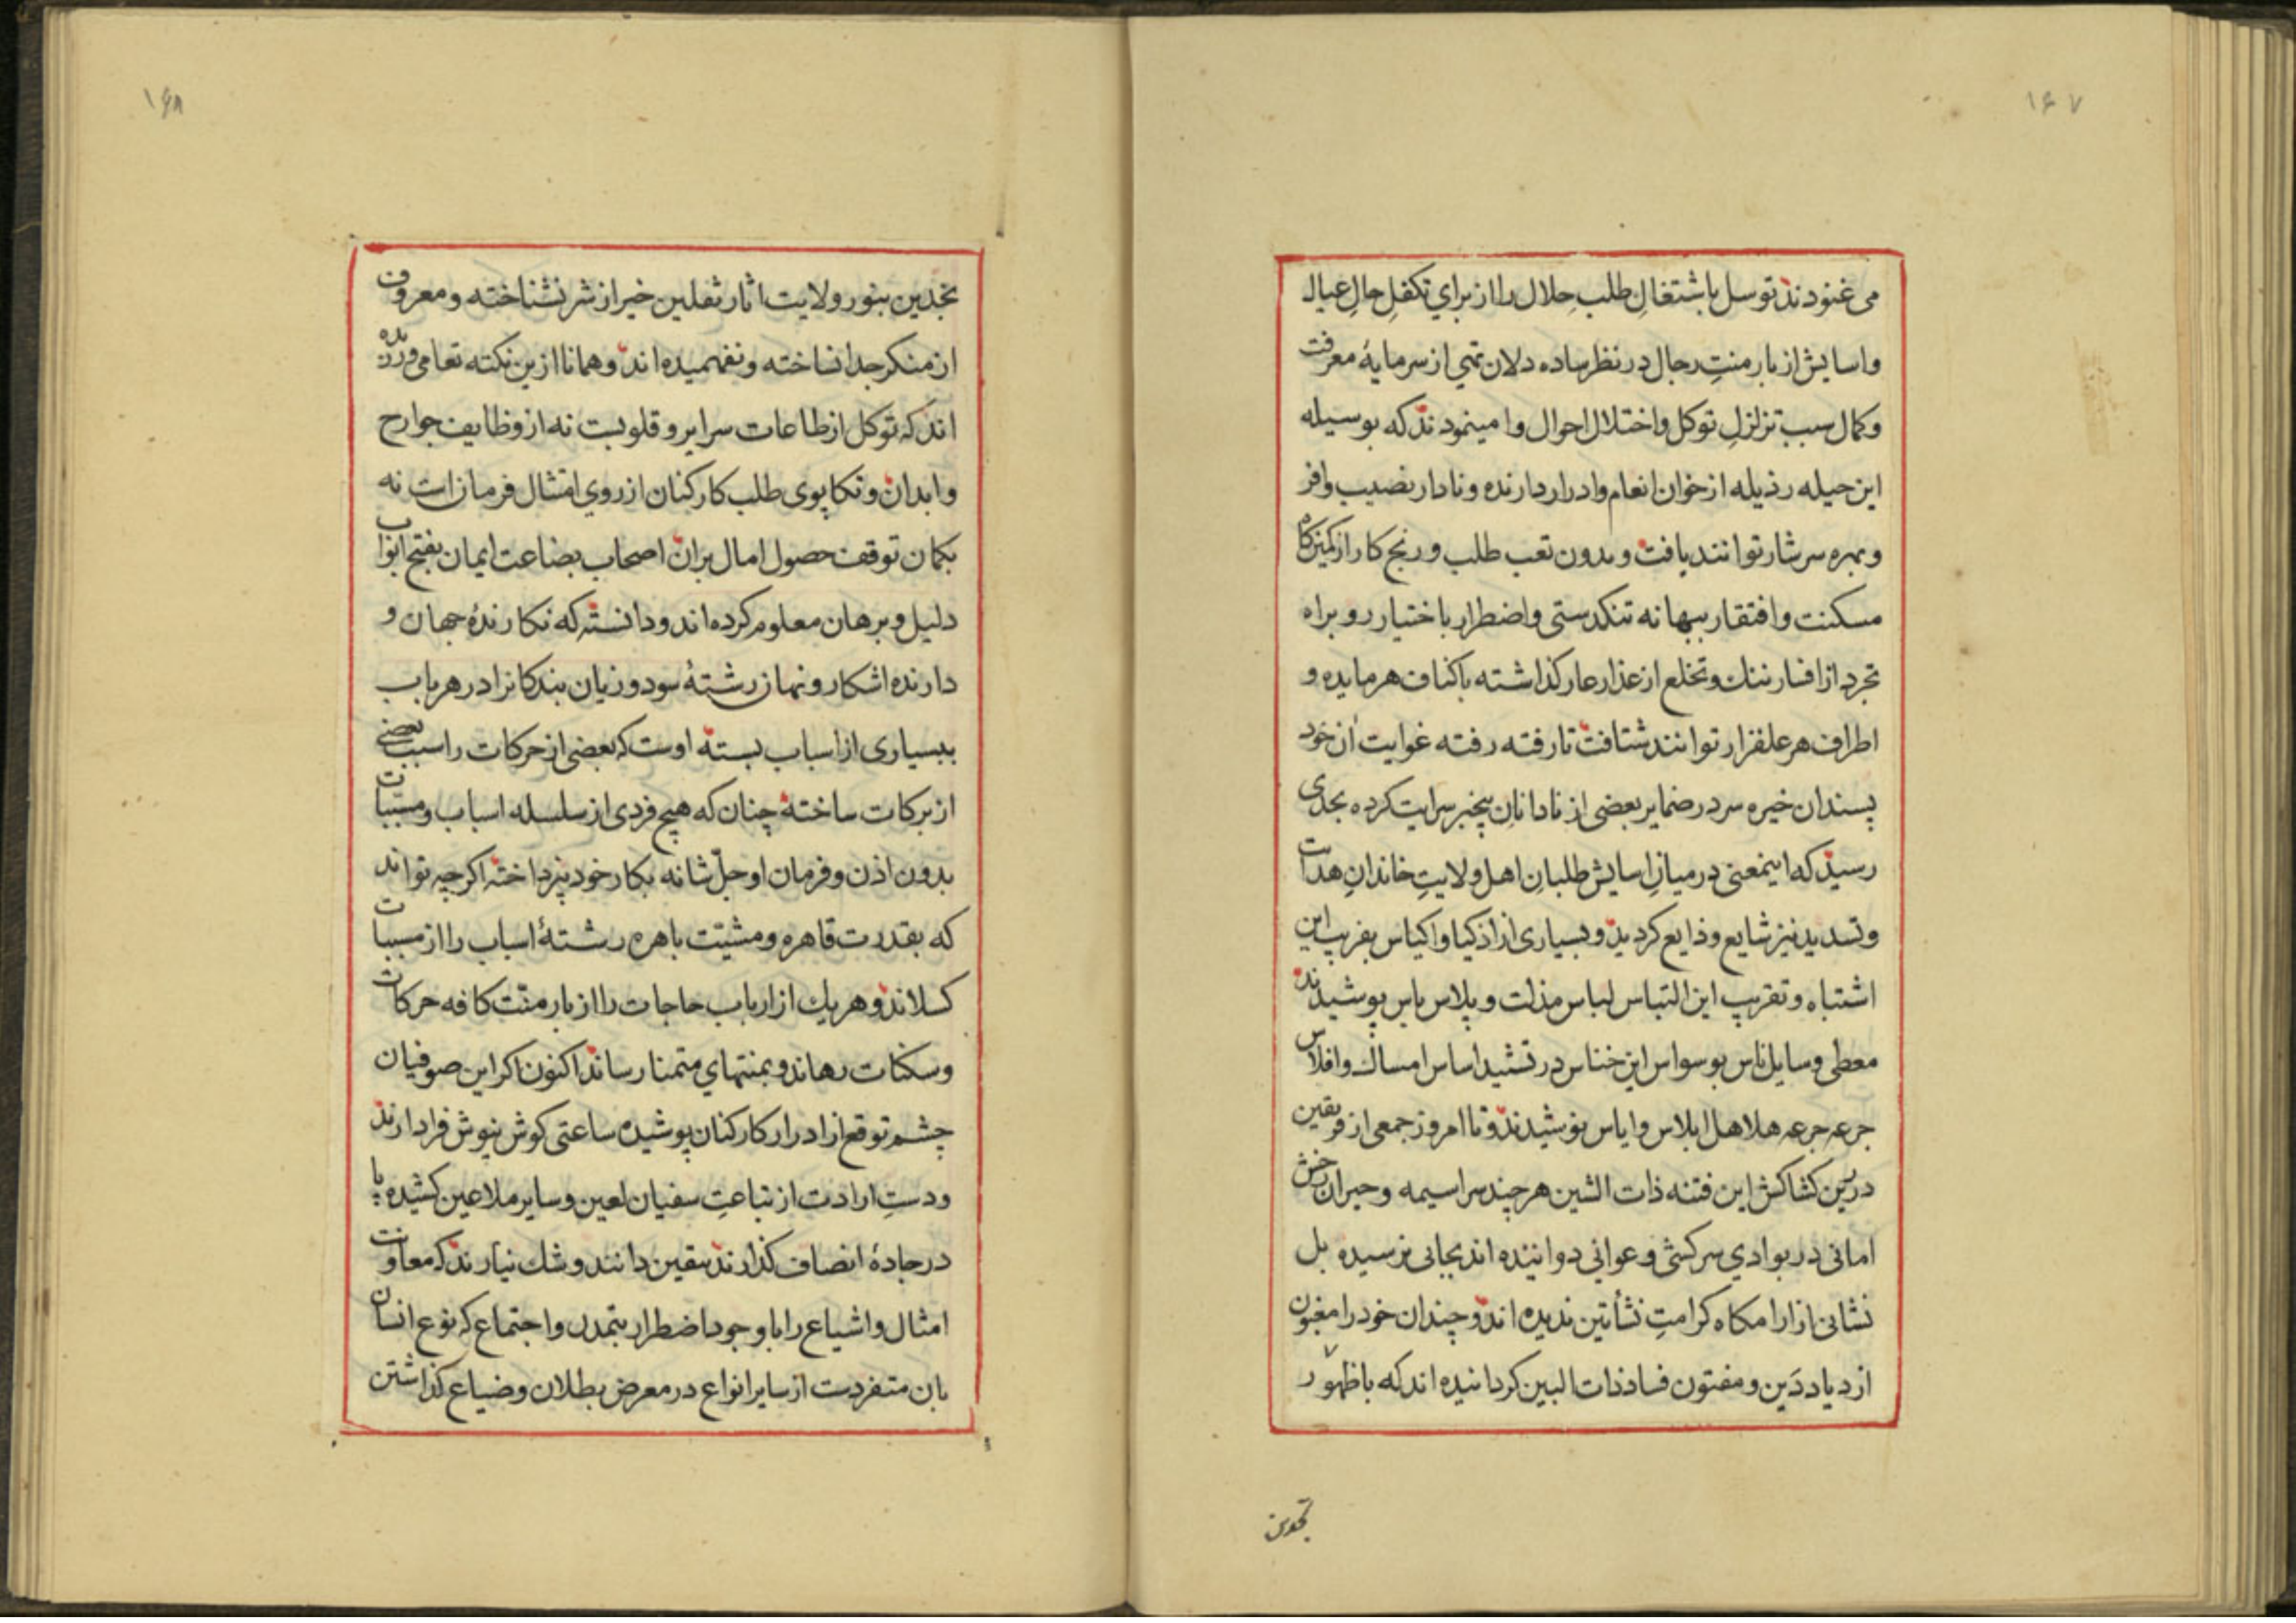 ۱۶۷
می غنودند توسل باشتغال طلب حلال را از برای تکفل حال عیال
واسایش از بار منت رجال در نظر ساده دلان تهی از سرمایهٔ معرفت
وکمال سبب تزلزل توکل واختلال احوال وا مینمودند که بوسیله
این حیله رذیله از خوان انعام وادرار دارنده ونادار نصیب وافر
وبهره سرشار توانند یافت وبدون تعب طلب ورنج کار از کمینکاه
مسکنت وافتقار ببهانه تنکدستی واضطرار باختیار رو براه
تجرد از افسار ننك وتخلع از عذار عار کذاشته باکناف هر مایده و
اطراف هر علفزار توانند شتافت تا رفته رفته غوایت آن خود
پسندان خیره سر در ضمایر بعضی از نادانان بیخبر سرایت کرده بحدی
رسید که اینمعنی در میان اسایش طلبان اهل ولایت خاندان هدات
وتسدید نیز شایع وذایع کردید وبسیاری از اذکیا واکیاس بفریب این
اشتباه وتقریب این التباس لباس مذلت وپلاس یاس پوشیدند
معطی وسایل ناس بوسواس این خناس در تشیید اساس امساك وافلاس
جرعه جرعه هلاهل ابلاس وایاس نوشیدند وتا امروز جمعی از فریقین
درین کشاکش این فتنه ذات الشین هر چند سراسیمه وحیران رخش
امانی در بوادی سرکشی وعوانی دوانیده اند بجائی نرسیده بل
نشانی از ارامکاه کرامت نشأتین ندیده اند وچندان خود را مغبون
ازدیاد دَین ومفتون فساد ذات البین کردانیده اند که با ظهور
نجدین
۱۶۸
نجدین بنور ولایت اثار ثقلین خیر از شر نشناخته ومعروف
از منکر جدا نساخته ونفهمیده اند وهمانا ازین نکته تعامی ورزیده
اند که توکل از طاعات سرایر وقلوبست نه از وظایف جوارح
وابدان وتکاپوی طلب کارکنان از روی امتثال فرمان است نه
بکمان توقف حصول امال بران اصحاب بضاعت ایمان بفتح ابواب
دلیل وبرهان معلوم کرده اند ودانسته که نکارندهٔ جهان و
دارنده اشکار ونهان رشتهٔ سود وزیان بندکانرا در هر باب
ببسیاری از اسباب بسته اوست که بعضی از حرکات را سبب بعضی
از برکات ساخته چنان که هیچ فردی از سلسله اسباب ومسبّبات
بدون اذن وفرمان او جلّ شانه بکار خود نپرداخته اکر چه تواند
که بقدرت قاهره ومشیّت باهره رشتهٔ اسباب را از مسببات
کسلاند وهر یك از ارباب حاجات را از بار منّت کافه حرکات
وسکنات رهاند وبمنتهای متمنا رساند اکنون اکر این صوفیان
چشم توقع از ادرار کارکنان پوشیده ساعتی کوش نیوش فرا دارند
ودست ارادت از تباعت سفیان لعین وسایر ملاعین کشیده پا
در جادهٔ انصاف کذارند یقین دانند وشك نیارند که معاونت
امثال واشیاع را با وجود اضطرار بتمدن واجتماع که نوع انسان
بان متفردست از سایر انواع در معرض بطلان وضیاع کذاشتن